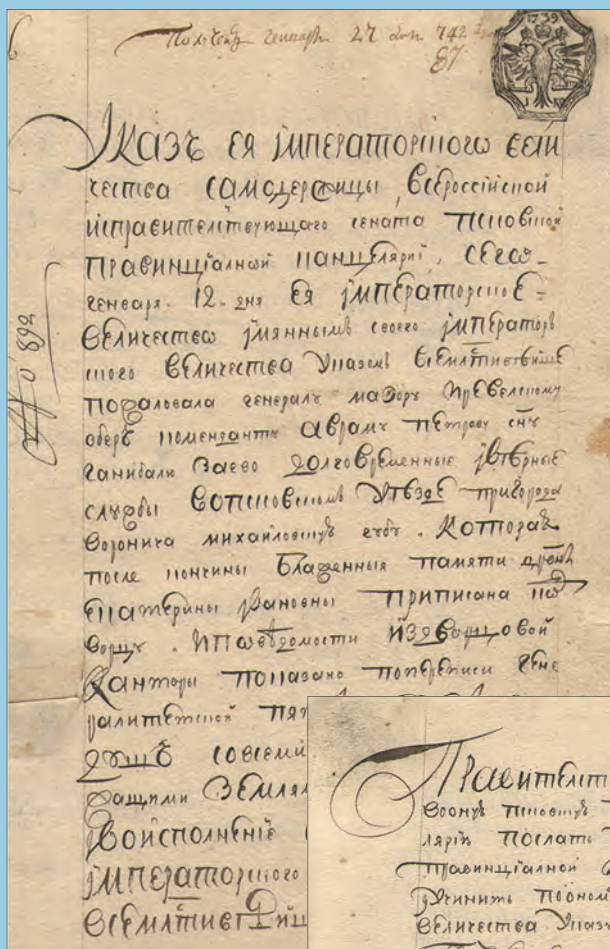 Получен генваря 27 дня 742 году
87
1739
№ 892
Указъ ея императорского вели
чества самодержицы всероссиской
исправителствующаго сената псковской
правинциалной канцелярии, сего
генваря 12 дня ея императорское
величество имяннымъ своего император
ского величества указомъ всемилостивеише
пожаловала генералъ маэору иревелскому
оберъ коменданту авраму петрову сну
ганибалу заево долговременные ивѣрные
службы вопсковскомъ уѣзде пригорода
воронича михаиловскую губу. которая
после кончины блаженныя памяти црвны
екатерины ивановны приписана ко
дворцу. иповедомости издворцовой
канторы показано попереписи гене
ралитетской
душъ совсеми
землям
воисполнение
императорского
всемилостивейш
Правителст
воону псковску
лярии послать
правинциалной
учинить посиом
величества указ